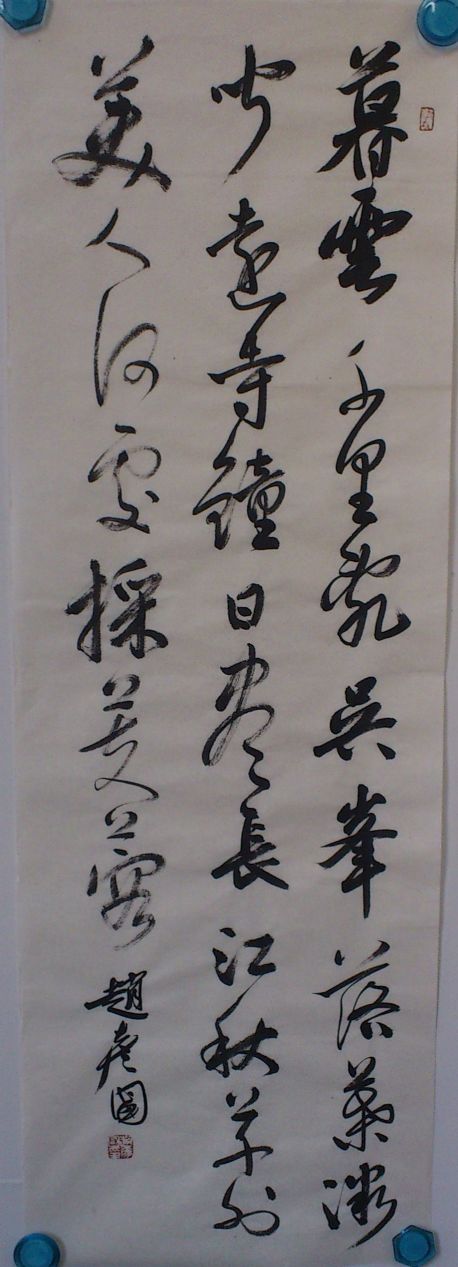 暮雲千里亂吳峯落葉微
聞遠寺鐘日盡長江秋草外
美人何處採芙蓉
趙國